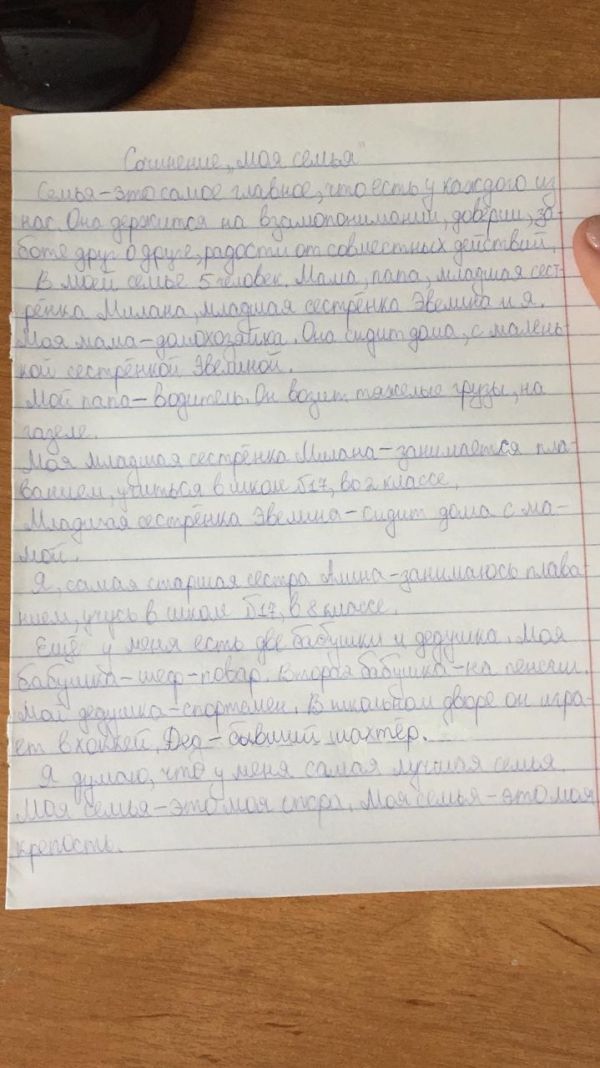 Сочинение „моя семья"
Семья-это самое главное, что есть у каждого из
нас. Она держится на взамопонимании, доверии, за-
боте друг о друге, радости от совместных действий.
В моей семье 5 человек. Мама, папа, младшая сест-
рёнка Милана, младшая сестрёнка Эвелина и я.
Моя мама-домохозяйка. Она сидит дома, с малень-
кой сестрёнкой Эвелиной.
Мой папа-водитель. Он возит тяжелые грузы, на
газеле.
Моя младшая сестрёнка Милана-занимается пла-
ванием, учиться в школе Б17, во 2 классе.
Младшая сестрёнка Эвелина-сидит дома с ма-
мой.
Я, самая старшая сестра Амина-занимаюсь плава-
нием, учусь в школе Б17, в 8 классе.
Ещё у меня есть две бабушки и дедушка. Моя
бабушка-шеф-повар. Вторая бабушка-на пенсии.
Мой дедушка-спортсмен. В школьном дворе он игра-
ет в хоккей. Дед-бывший шахтёр.
Я думаю, что у меня самая лучшая семья.
Моя семья-это моя опора. Моя семья-это моя
крепость.